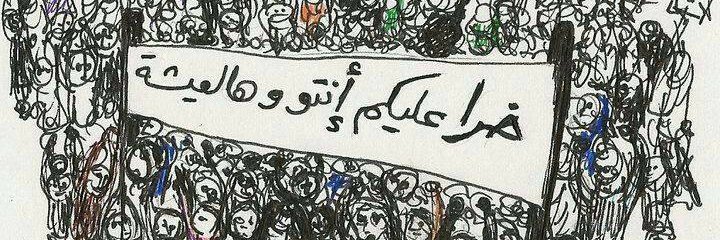 خرا عليكم إٔنتو و هالعيشة